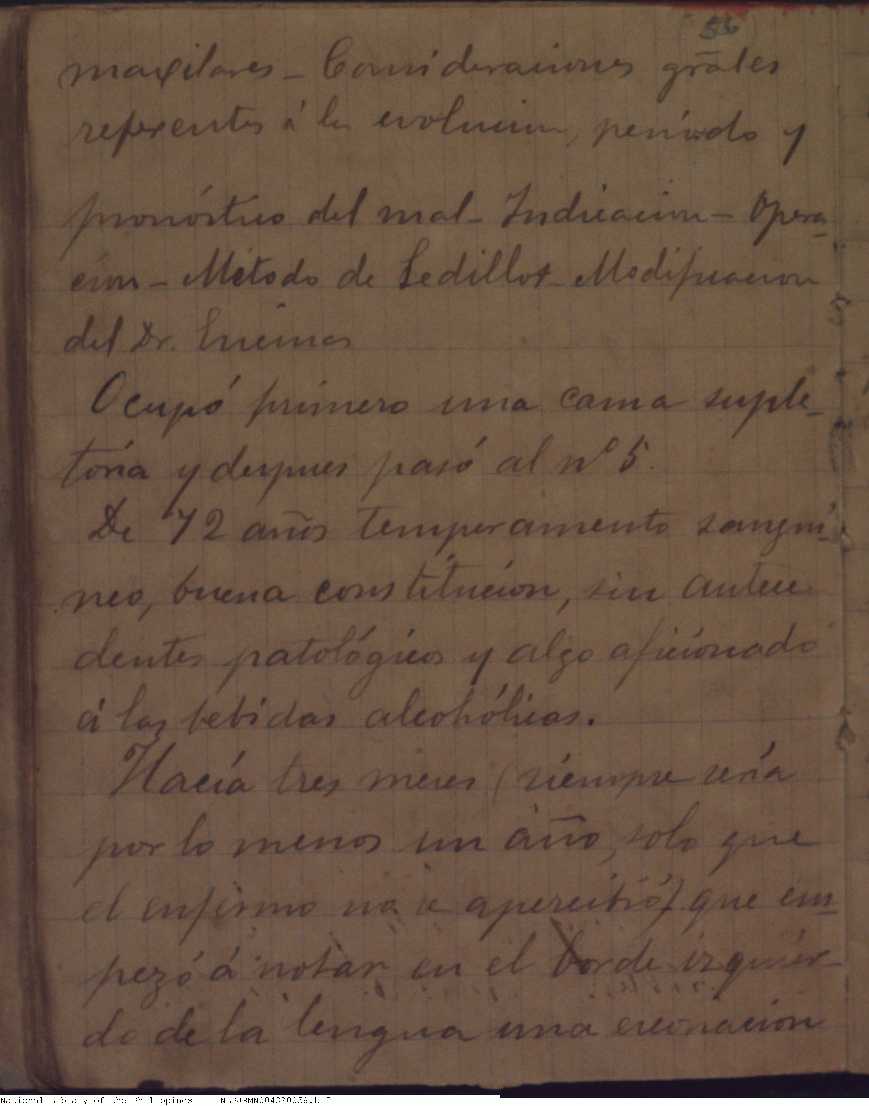 56
maxilares - Consideraciones grāles
referentes á la evolucion, período y
pronóstico del mal - Indicacion - Opera-
cion - Método de Sedillot - Modificacion
del Dr. Encinas
Ocupó primero una cama suple-
toria y despues pasó al nº 5.
De 72 años temperamento sanguí-
neo, buena constitucion, sin antece
dentes patológicos y algo aficionado
á las bebidas alcohólicas.
Hacía tres meses (siempre sería
por lo menos un año, solo que
el enfermo no se apercibió) que em-
pezó á notar en el borde izquier-
do de la lengua una excoriacion
National Library of the Philippines